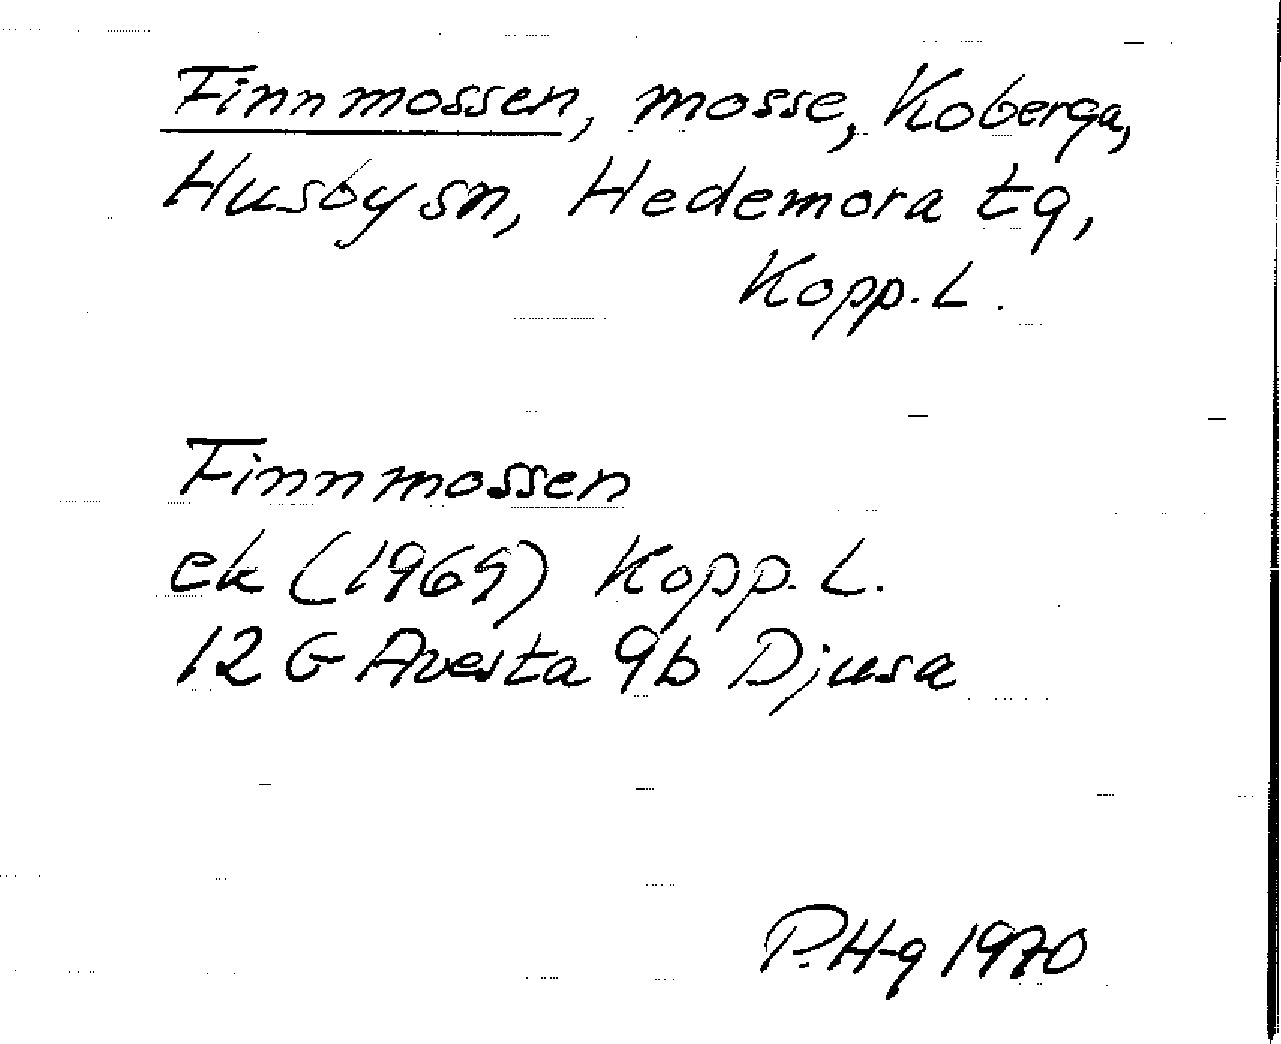 Finnmossen, mosse, Koberga,
Husby sn, Hedemora tg,
Kopp. L.
Finnmossen
ek (1969) Kopp. L.
12 G Avesta 9b Djusa
P.Hg 1970